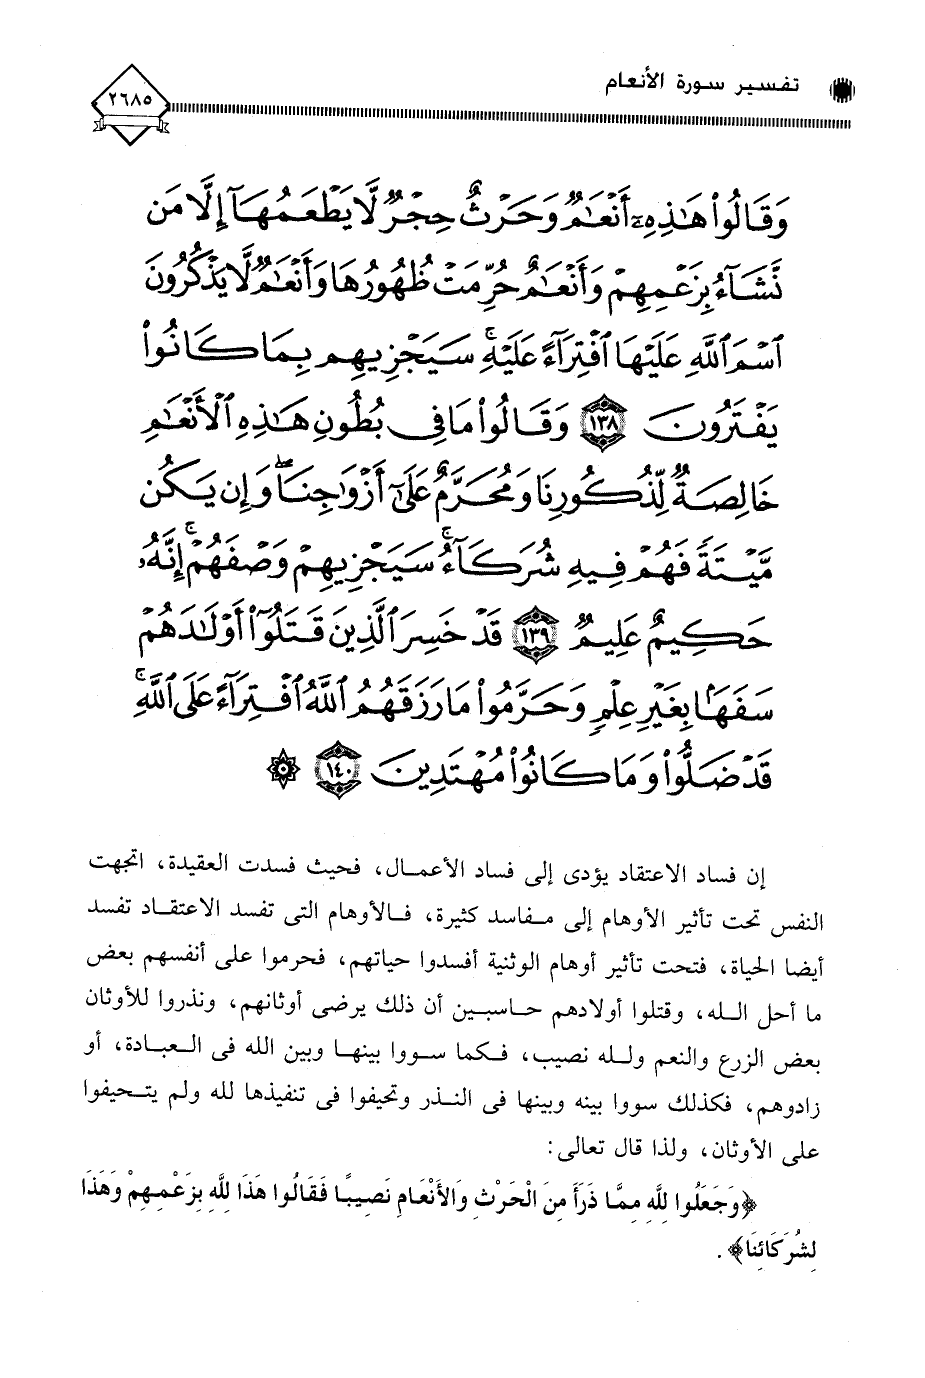 تفسير سورة الأنعام
٢٦٨٥
وَقَالُوا۟ هَـٰذِهِۦٓ أَنْعَـٰمٌ وَحَرْثٌ حِجْرٌ لَّا يَطْعَمُهَآ إِلَّا مَن
نَّشَآءُ بِزَعْمِهِمْ وَأَنْعَـٰمٌ حُرِّمَتْ ظُهُورُهَا وَأَنْعَـٰمٌ لَّا يَذْكُرُونَ
ٱسْمَ ٱللَّهِ عَلَيْهَا ٱفْتِرَآءً عَلَيْهِ ۚ سَيَجْزِيهِم بِمَا كَانُوا۟
يَفْتَرُونَ ١٣٨ وَقَالُوا۟ مَا فِى بُطُونِ هَـٰذِهِ ٱلْأَنْعَـٰمِ
خَالِصَةٌ لِّذُكُورِنَا وَمُحَرَّمٌ عَلَىٰٓ أَزْوَٰجِنَا ۖ وَإِن يَكُن
مَّيْتَةً فَهُمْ فِيهِ شُرَكَآءُ ۚ سَيَجْزِيهِمْ وَصْفَهُمْ ۚ إِنَّهُۥ
حَكِيمٌ عَلِيمٌ ١٣٩ قَدْ خَسِرَ ٱلَّذِينَ قَتَلُوٓا۟ أَوْلَـٰدَهُمْ
سَفَهًۢا بِغَيْرِ عِلْمٍ وَحَرَّمُوا۟ مَا رَزَقَهُمُ ٱللَّهُ ٱفْتِرَآءً عَلَى ٱللَّهِ ۚ
قَدْ ضَلُّوا۟ وَمَا كَانُوا۟ مُهْتَدِينَ ١٤٠
إن فساد الاعتقاد يؤدى إلى فساد الأعمـال، فحيث فسدت العقيدة، اتجهت
النفس تحت تأثير الأوهام إلى مفاسد كثيرة، فالأوهام التى تفسد الاعتقاد تفسد
أيضا الحياة، فتحت تأثير أوهام الوثنية أفسدوا حياتهم، فحرموا على أنفسهم بعض
ما أحل الله، وقتلوا أولادهم حاسبين أن ذلك يرضى أوثانهم، ونذروا للأوثان
بعض الزرع والنعم ولله نصيب، فكما سووا بينها وبين الله فى العبادة، أو
زادوهم، فكذلك سووا بينه وبينها فى النذر وتحيفوا فى تنفيذها لله ولم يتحيفوا
على الأوثان، ولذا قال تعالى:
﴿وَجَعَلُوا لِلَّهِ مِمَّا ذَرَأَ مِنَ الْحَرْثِ وَالأَنْعَامِ نَصِيبًا فَقَالُوا هَذَا لِلَّهِ بِزَعْمِهِمْ وَهَذَا
لِشُرَكَائِنَا﴾.